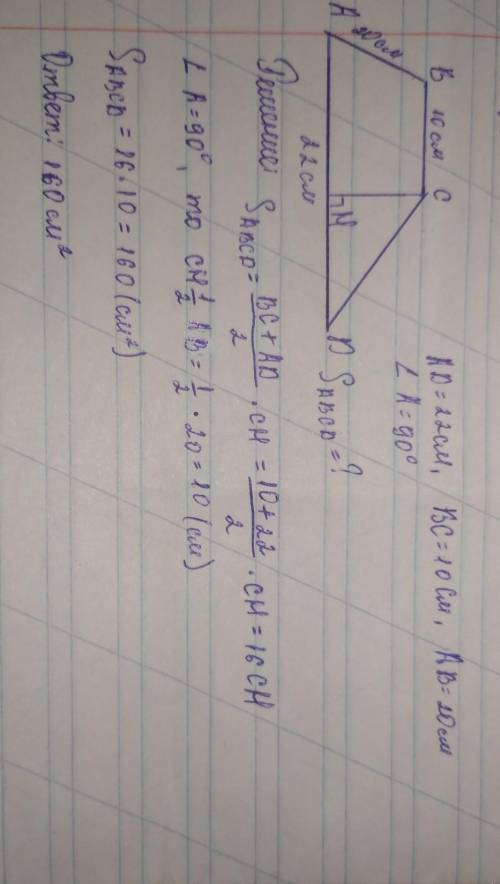 AD=22см, BC=10см, AB=20см
∠A=90°
B 10см C
A 20см
22см H
D S ABCD=?
Решение: S ABCD = BC+AD/2 · CH = 10+22/2 · CH = 16CH
∠A=90°, то CH 1/2 AB = 1/2 · 20 = 10 (см)
S ABCD = 16·10 = 160 (см²)
Ответ: 160 см²